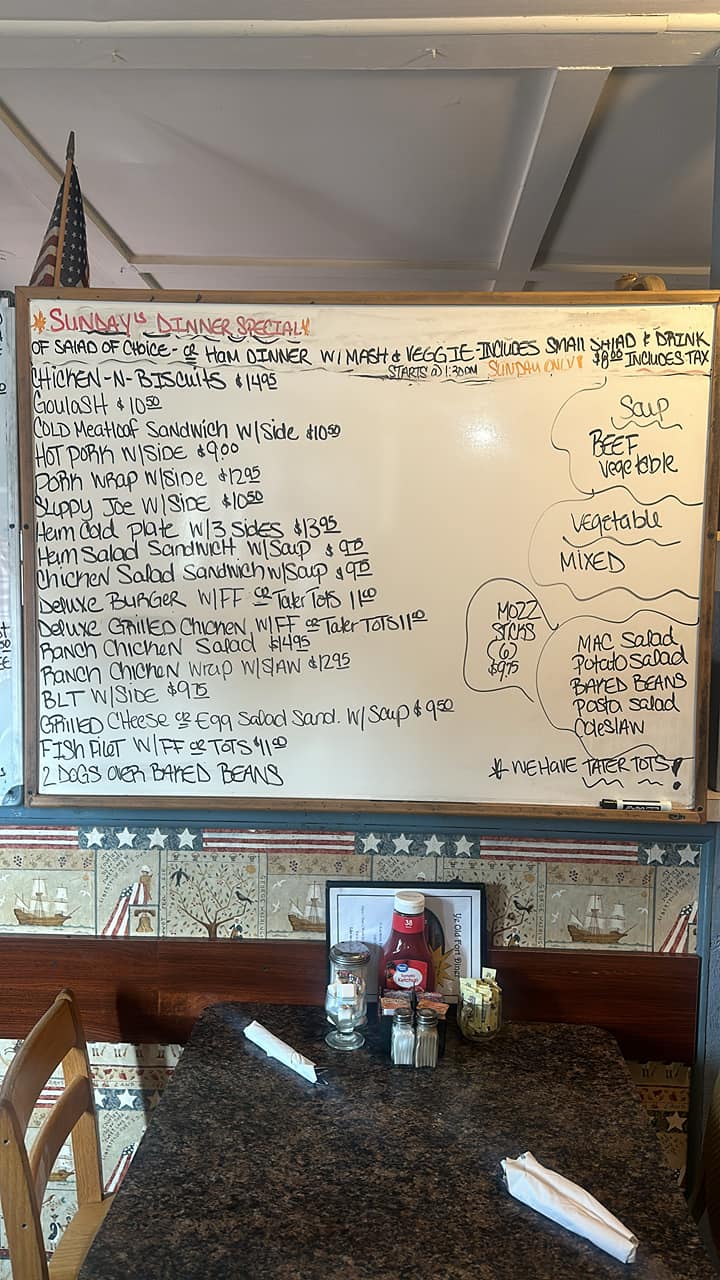 SUNDAY'S DINNER SPECIAL
OF SALAD OF CHOICE - OR HAM DINNER W/ MASH & VEGGIE - INCLUDES SMALL SALAD & DRINK
STARTS @ 1:30PM SUNDAY ONLY! $8.00 INCLUDES TAX
CHICKEN-N-BISCUITS $14.95
GOULASH $10.50
COLD Meatloaf Sandwich W/Side $10.50
HOT PORK W/SIDE $9.00
PORK WRAP W/SIDE $12.95
SLIPPY JOE W/SIDE $10.50
Ham Cold Plate W/3 Sides $13.95
Ham Salad Sandwich W/Soup $9.75
CHICKEN Salad Sandwich W/Soup $9.75
DELUXE BURGER W/FF OR Tater Tots 11.00
Deluxe GRILLED CHICKEN W/FF OR Tater TOTS 11.00
RANCH CHICKEN Salad $14.95
RANCH CHICKEN Wrap W/SLAW $12.95
BLT W/SIDE $9.75
GRILLED CHEESE OR Egg Salad Sand. W/Soup $9.50
FISH FILET W/FF OR TOTS $11.00
2 DOGS OVER BAKED BEANS
Soup
BEEF
Vegetable
Vegetable
MIXED
MOZZ
STICKS
(6)
$9.75
MAC Salad
Potato Salad
BAKED BEANS
Pasta Salad
COLESLAW
* WE HAVE TATER TOTS!
Ye Old Fort Diner
38
Tomato
Ketchup